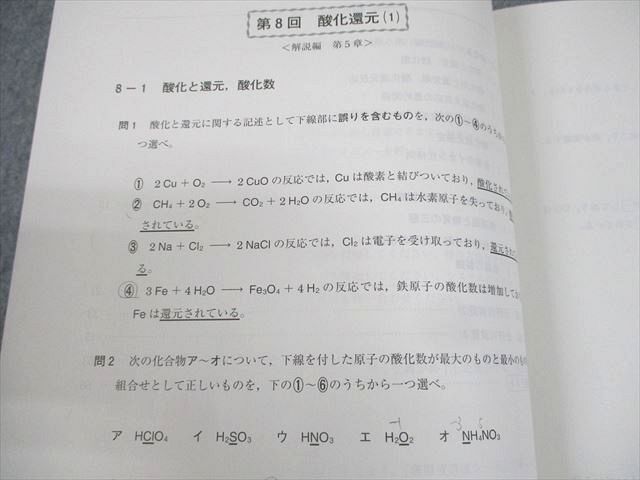 第8回 酸化還元(1)
<解説編 第5章>
8－1 酸化と還元，酸化数
問1 酸化と還元に関する記述として下線部に誤りを含むものを，次の①～④のうちか
つ選べ。
① 2Cu + O₂ ⟶ 2CuO の反応では，Cu は酸素と結びついており，酸化されて
② CH₄ + 2O₂ ⟶ CO₂ + 2H₂O の反応では，CH₄ は水素原子を失っており，
されている。
③ 2Na + Cl₂ ⟶ 2NaCl の反応では，Cl₂ は電子を受け取っており，還元され
る。
④ 3Fe + 4H₂O ⟶ Fe₃O₄ + 4H₂ の反応では，鉄原子の酸化数は増加して
Fe は還元されている。
問2 次の化合物ア～オについて，下線を付した原子の酸化数が最大のものと最小のもの
組合せとして正しいものを，下の①～⑥のうちから一つ選べ。
-1 -3 5
ア HClO₄ イ H₂SO₃ ウ HNO₃ エ H₂O₂ オ NH₄NO₃